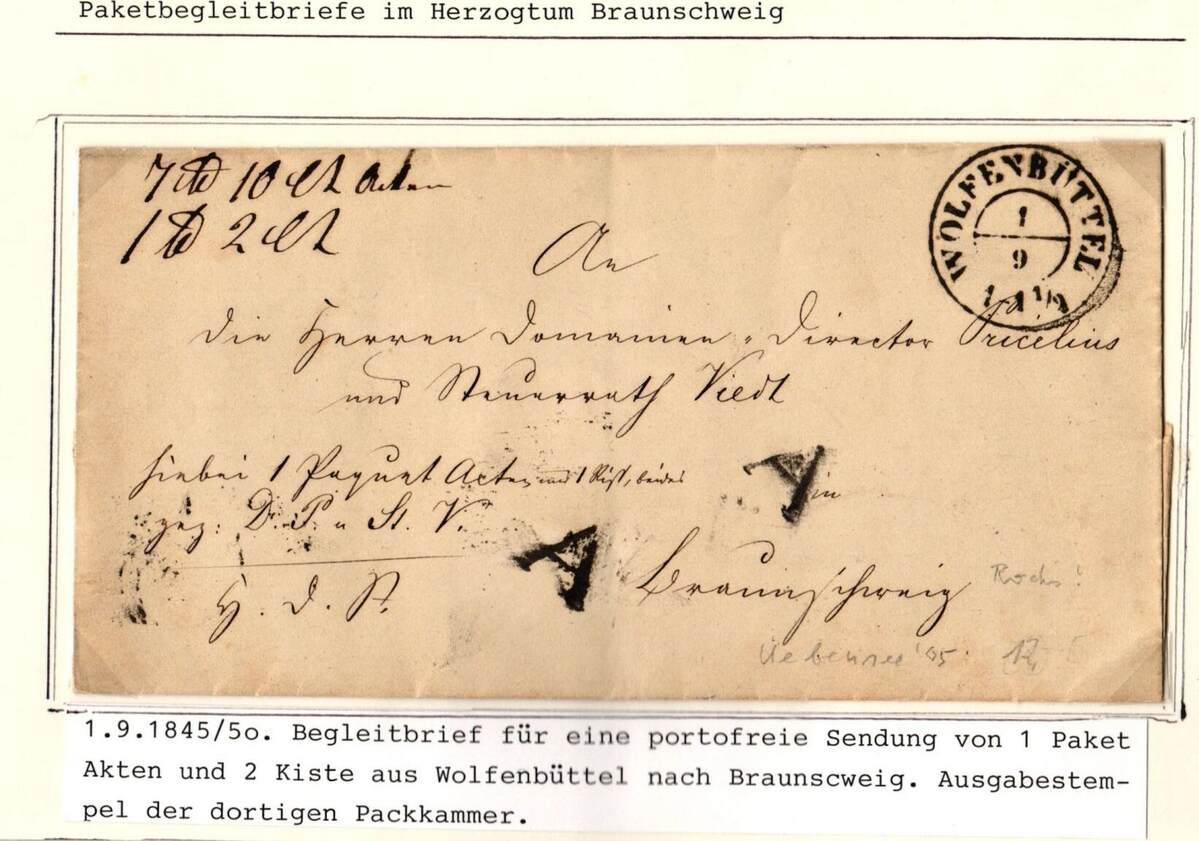 Paketbegleitbriefe im Herzogtum Braunschweig
7 ℔ 10 Lth Acten
1 ℔ 2 Lth
WOLFENBÜTTEL
1
9
An
die Herren Domainen-Director Pricelius
und Steuerrath Viedt
hiebei 1 Paquet Acten und 1 Kist, beides
gez: D. P. u St. V.
in
A
A
H. d. S.
Braunschweig
'95
12
1.9.1845/5o. Begleitbrief für eine portofreie Sendung von 1 Paket
Akten und 2 Kiste aus Wolfenbüttel nach Braunscweig. Ausgabestem-
pel der dortigen Packkammer.